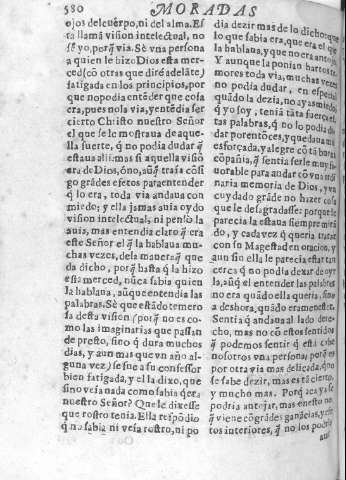 580
MORADAS
ojos del cuerpo, ni del alma. Es
ta llamā vision intelectual, no
sè yo, porq̃ via. Sè vna persona
a quien le hizo Dios esta mer-
ced (cō otras que dirè adelāte)
fatigada en los principios, por
que no podia entēder que cosa
era, pues no la via, y entēdia ser
cierto Christo nuestro Señor
el que se le mostraua de aque-
lla suerte, q̃ no podia dudar q̃
estaua alli: mas si aquella visiō
era de Dios, ò no, aūq̃ traia cōsi
go grādes efetos para entender
q̃ lo era, toda via andaua con
miedo; y ella jamas auia oydo
vision intelectual, ni pensò la
auia, mas entendia claro q̃ era
este Señor el q̃ la hablaua mu-
chas vezes, de la manera q̃ que
da dicho, porq̃ hasta q̃ la hizo
esta merced, nūca sabia quien
la hablaua, aūque entendia las
palabras. Sè que estādo temero
sa desta visiō (porq̃ no es co-
mo las imaginarias que passan
de presto, sino q̃ dura muchos
dias, y aun mas que vn año al-
guna vez) se fue a su confessor
bien fatigada, y el la dixo, que
sino veia nada como sabia q̃ era
nuestro Señor? Que le dixesse
que rostro tenia. Ella respōdio
q̃ no sabia ni veia rostro, ni po
dia dezir mas de lo dicho: que
lo que sabia era, que era el que
la hablaua, y que no era antojo.
Y aunque la ponian hartos te-
mores toda via, muchas vezes
no podia dudar, en especial
quādo la dezia, no ayas miedo,
q̃ yo soy, tenia tāta fuerça es-
tas palabras, q̃ no lo podia du-
dar por entōces, y quedaua muy
esforçada, y alegre cō tā buena
cōpañia, q̃ sentia serle muy fa-
uorable para andar cō vna ordi
naria memoria de Dios, y vn
cuydado grāde no hazer cosa
que le desagradasse: porque le
parecia la estaua siempre mirā
do, y cada vez q̃ queria tratar
con su Magestad en oracion, y
aun sin ella le parecia estar tan
cerca q̃ no podia dexar de oyr
la, aūq̃ el entender las palabras
no era quādo ella queria, sino
a deshora, quādo era menester.
Sentia q̃ andaua al lado dere-
cho, mas no cō estos sentidos
q̃ podemos sentir q̃ està cabe
nosotros vna persona; porq̃ es
por otra via mas delicada, q̃ no
se sabe dezir, mas es tā cierto,
y mucho mas. Porq̃ aca ya se
podria antojar, mas en esto no,
q̃ viene cō grādes ganācias, y efe
tos interiores, q̃ no los podria